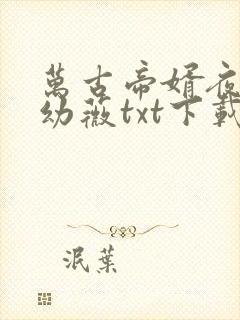 萬古帝婿夜
幼薇txt下載
泯葉